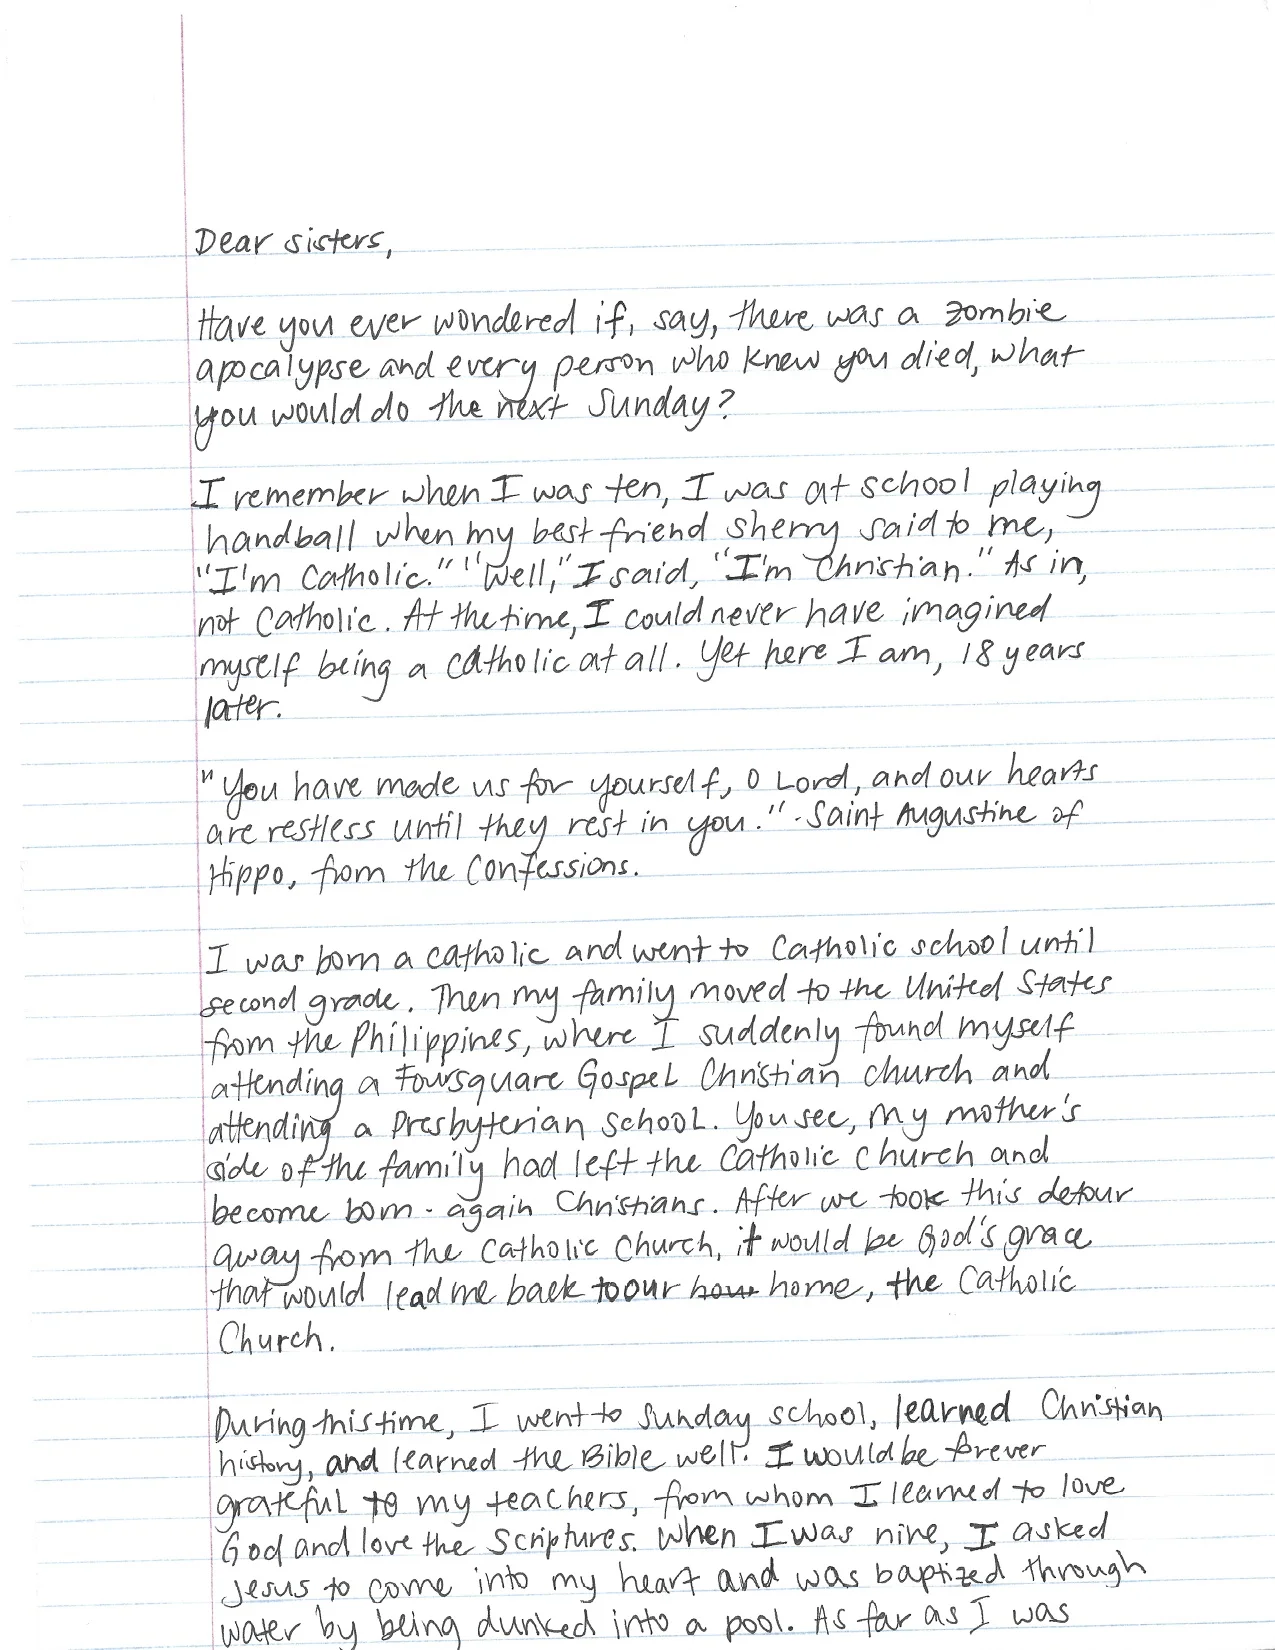 Dear sisters,
Have you ever wondered if, say, there was a zombie
apocalypse and every person who knew you died, what
you would do the next Sunday?
I remember when I was ten, I was at school playing
handball when my best friend Sherry said to me,
"I'm Catholic." "Well," I said, "I'm Christian." As in,
not Catholic. At the time, I could never have imagined
myself being a Catholic at all. Yet here I am, 18 years
later.
"You have made us for yourself, O Lord, and our hearts
are restless until they rest in you." - Saint Augustine of
Hippo, from the Confessions.
I was born a Catholic and went to Catholic school until
second grade. Then my family moved to the United States
from the Philippines, where I suddenly found myself
attending a Foursquare Gospel Christian church and
attending a Presbyterian school. You see, my mother's
side of the family had left the Catholic Church and
become born-again Christians. After we took this detour
away from the Catholic Church, it would be God's grace
that would lead me back to our home, the Catholic
Church.
During this time, I went to Sunday school, learned Christian
history, and learned the Bible well. I would be forever
grateful to my teachers, from whom I learned to love
God and love the Scriptures. When I was nine, I asked
Jesus to come into my heart and was baptized through
water by being dunked into a pool. As far as I was